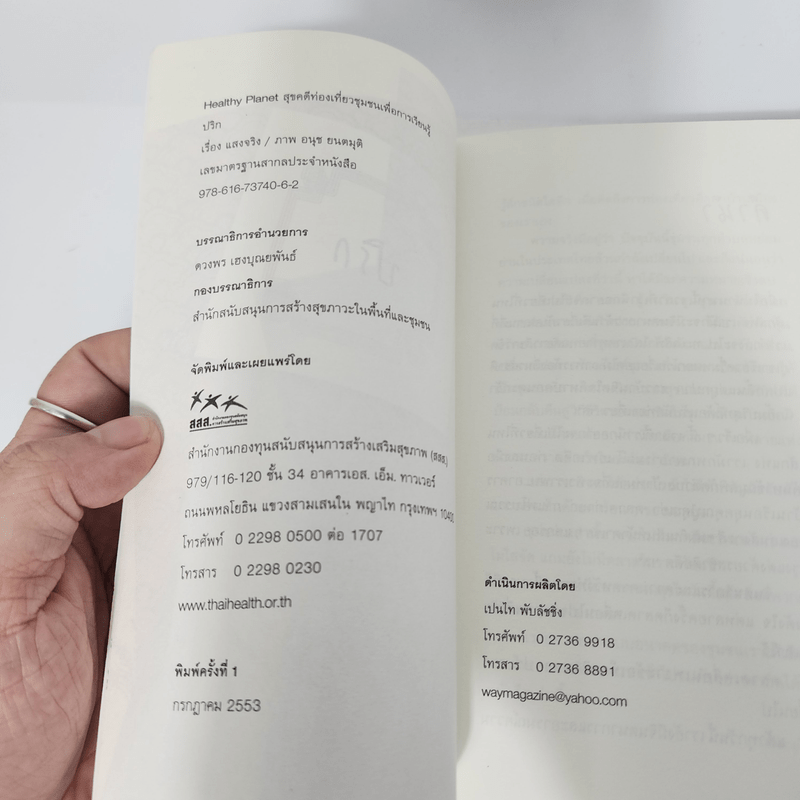 Healthy Planet สุขคดีท่องเที่ยวชุมชนเพื่อการเรียนรู้
ปริก
เรื่อง แสงจริง / ภาพ อนุช ยนตมุติ
เลขมาตรฐานสากลประจำหนังสือ
978-616-73740-6-2
บรรณาธิการอำนวยการ
ดวงพร เฮงบุณยพันธ์
กองบรรณาธิการ
สำนักสนับสนุนการสร้างสุขภาวะในพื้นที่และชุมชน
จัดพิมพ์และเผยแพร่โดย
สสส.
สำนักงานกองทุนสนับสนุนการสร้างเสริมสุขภาพ (สสส.)
979/116-120 ชั้น 34 อาคารเอส. เอ็ม. ทาวเวอร์
ถนนพหลโยธิน แขวงสามเสนใน พญาไท กรุงเทพฯ 10400
โทรศัพท์ 0 2298 0500 ต่อ 1707
โทรสาร 0 2298 0230
www.thaihealth.or.th
พิมพ์ครั้งที่ 1
กรกฎาคม 2553
ดำเนินการผลิตโดย
เปนไท พับลิชชิ่ง
โทรศัพท์ 0 2736 9918
โทรสาร 0 2736 8891
waymagazine@yahoo.com